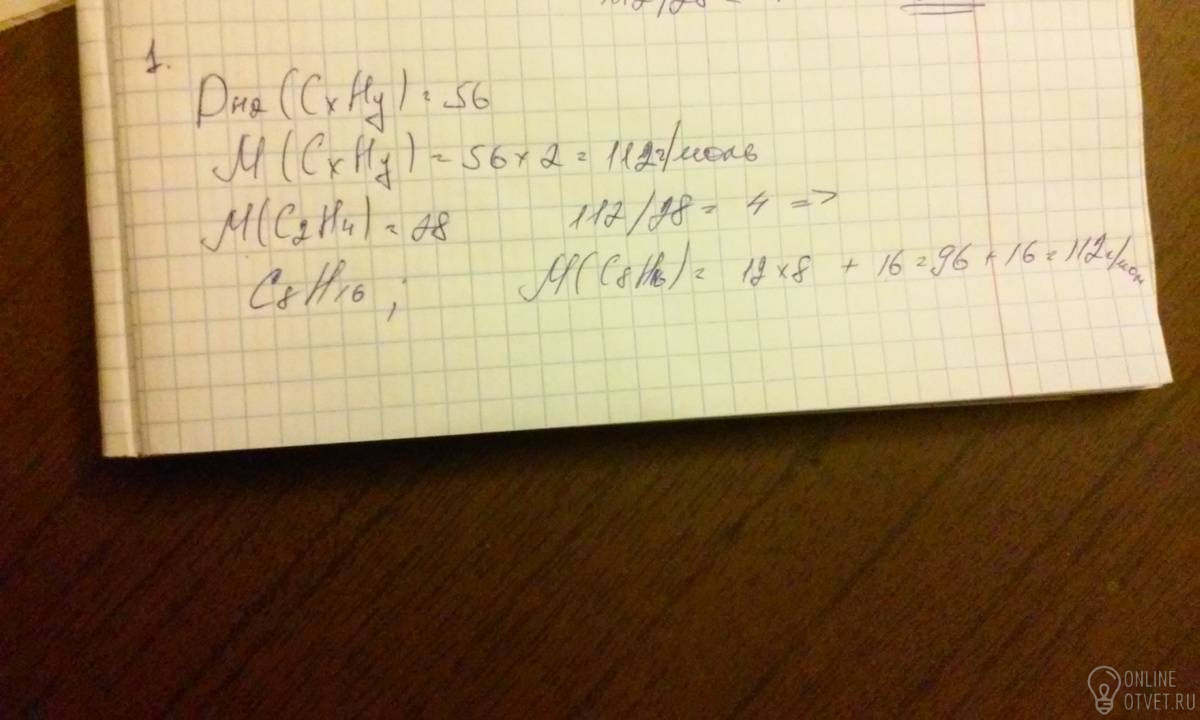 1.
Dн2 (CxHy) = 56
M (CxHy) = 56 x 2 = 112 г/моль
M(C2H4) = 28 112/28 = 4 =>
C8H16 ; M(C8H16) = 12 x 8 + 16 = 96 + 16 = 112 г/мол
ONLINE
OTVET.RU